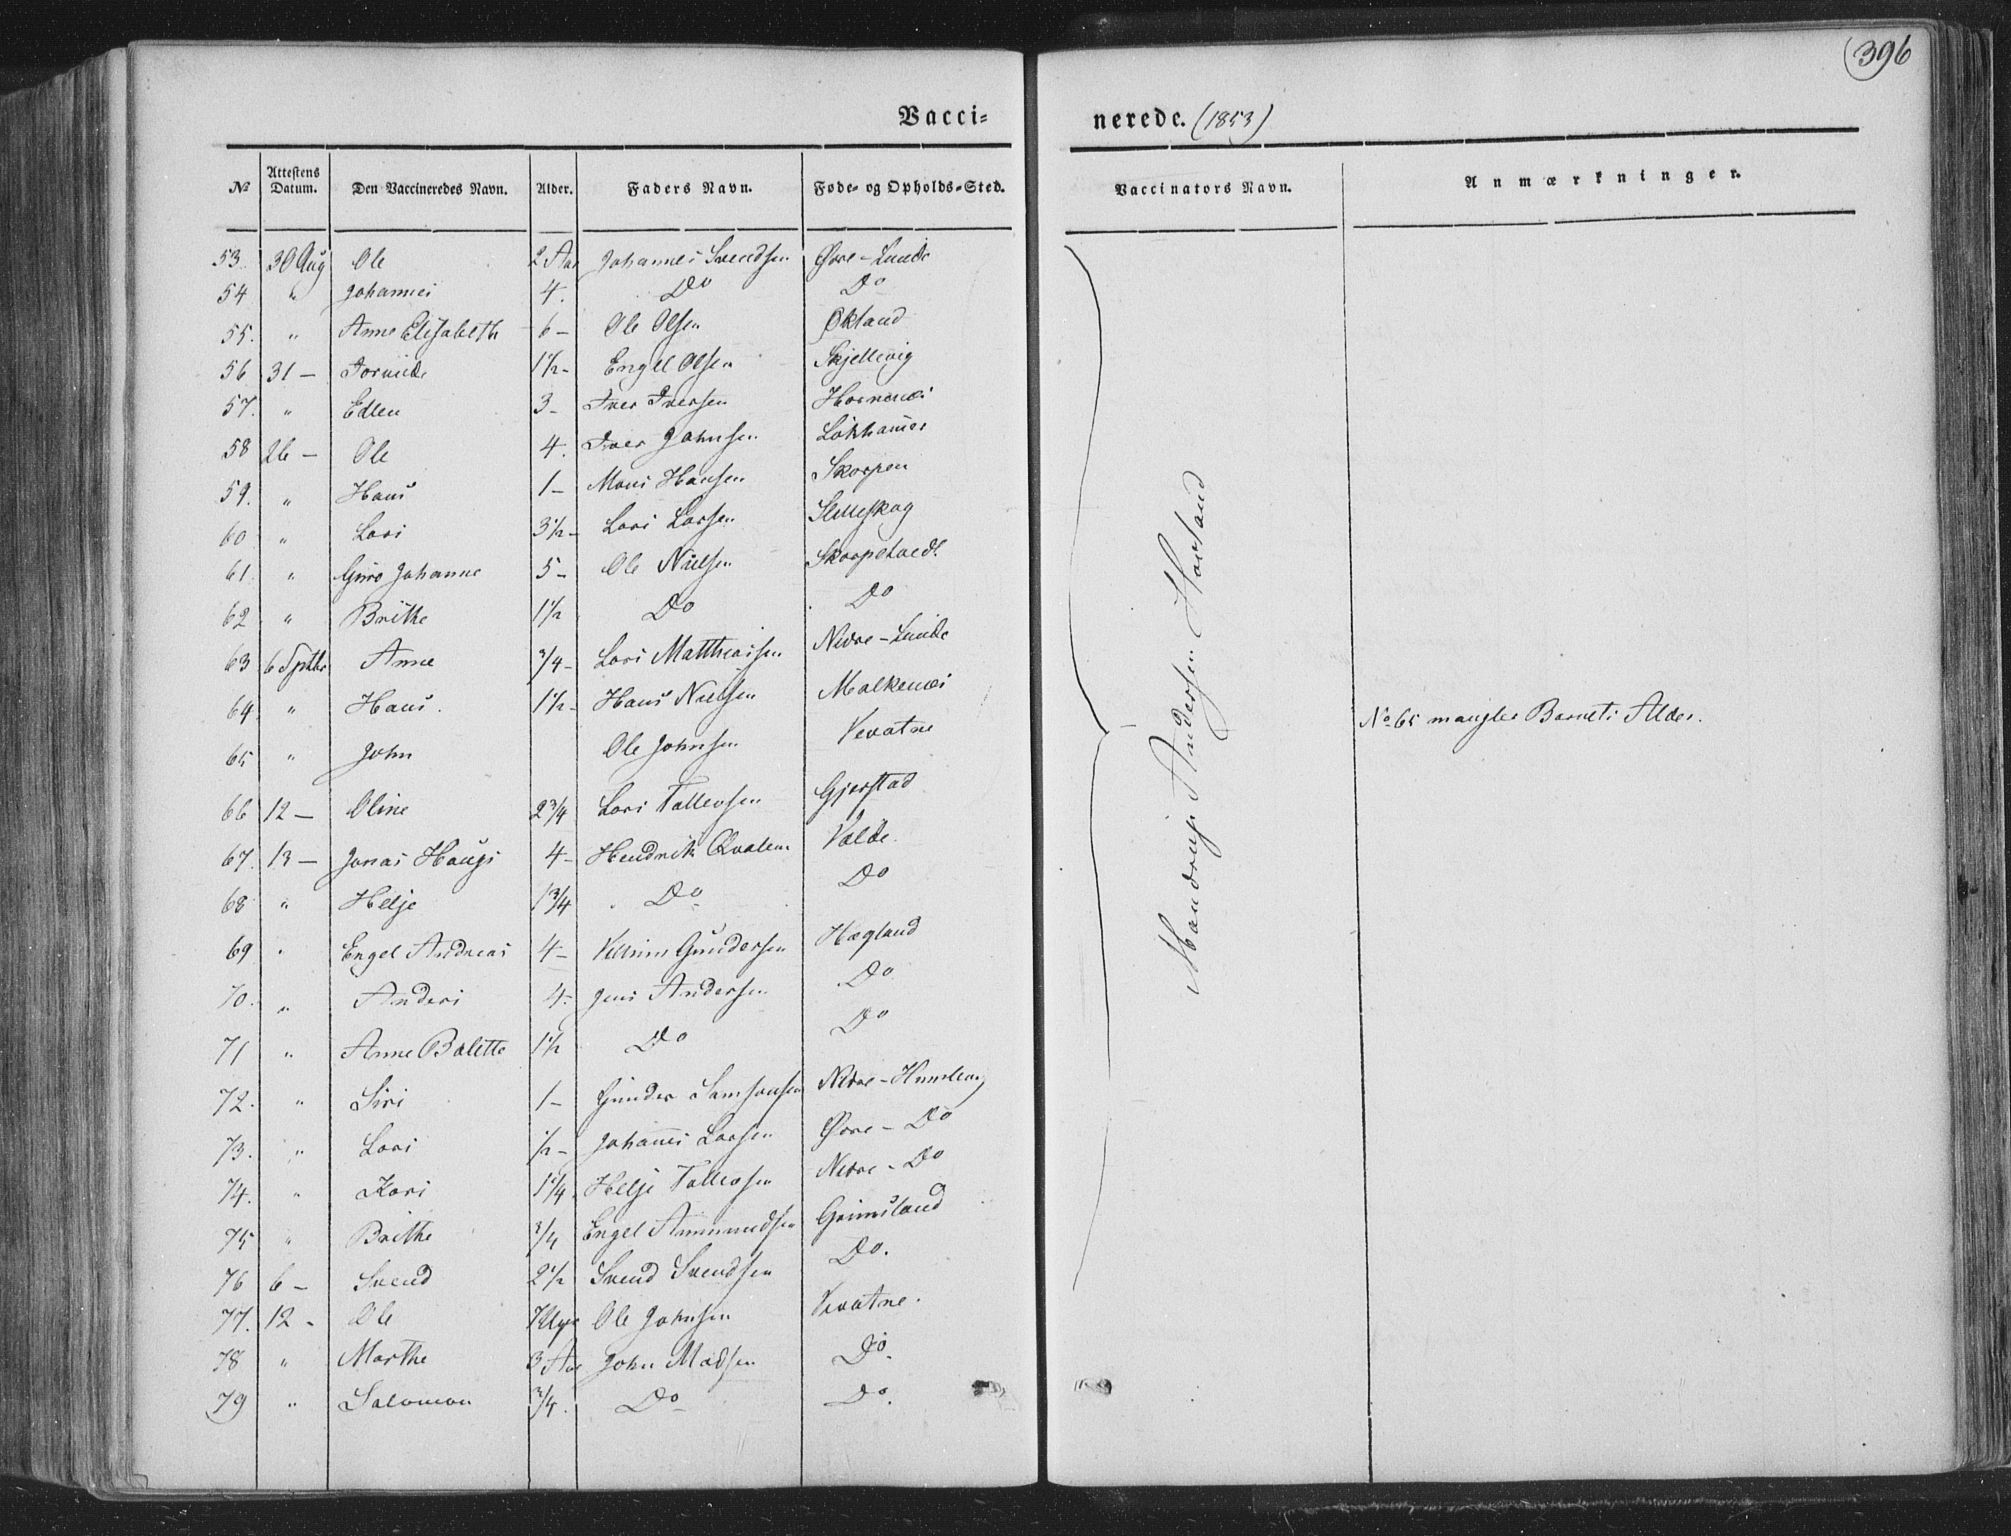 396
Vacci- nerede. (1853)
№ Attestens Datum. Den Vaccineredes Navn. Alder. Faders Navn. Føde- og Opholds-Sted. Vaccinators Navn. Anmærkninger.
53. 30 Aug Ole 2 Aar Johannes Svendsen Øvre-Lunde
54 " Johannes 4. Do Do
55. " Anne Elisabeth 6- Ole Olsen Økland
56 31 - 1½- Engel Olsen Skjellevig
57. " Edlen 3- Iver Iversen
58 26 - Ole 4. Iver Johnsen Løkhamer
59. " Hans 1- Mons Hansen Skorpen
60 " Lars 3½- Lars Larsen
61. " Guro Johanne 5- Ole Nielsen
62 " Brithe 1½ Do Do
63 6 Sptbr Anne ¾- Lars Matthiassen Nedre-Lunde
64. " Hans. 1½- Hans Nielsen Malkenes
65 " John Ole Johnsen Vevatne
66 12 - Oline 2¾ Lars Tollevsen Gjerstad
67. 13 - Jonas Haugs 4- Hendrik Qvalen Valde.
68 " Helje 1¾ Do Do
69 " Engel Andreas 4- Gundersen Hægland
70. " Anders 4- Jens Andersen Do
71 " Anne Bolette 1½ Do Do
72. " Siri 1- Gunder Samsonsen
73. " Lars ½- Johannes Larsen Øvre-Do
74. " Kari 1¼ Helje Tollevsen Nedre-Do
75 " Brithe ¾ Engel Ammundsen Grimsland
76 6 - Svend 2½ Svend Svendsen Do.
77. 12 - Ole 7 Uger Ole Johnsen Vevatne.
78 " Marthe 3 Aar John Madsen Do.
79 " Salomon ¾. Do Do.
Mandrup Andersen Hovland
No 65 mangler Barnets Alder.